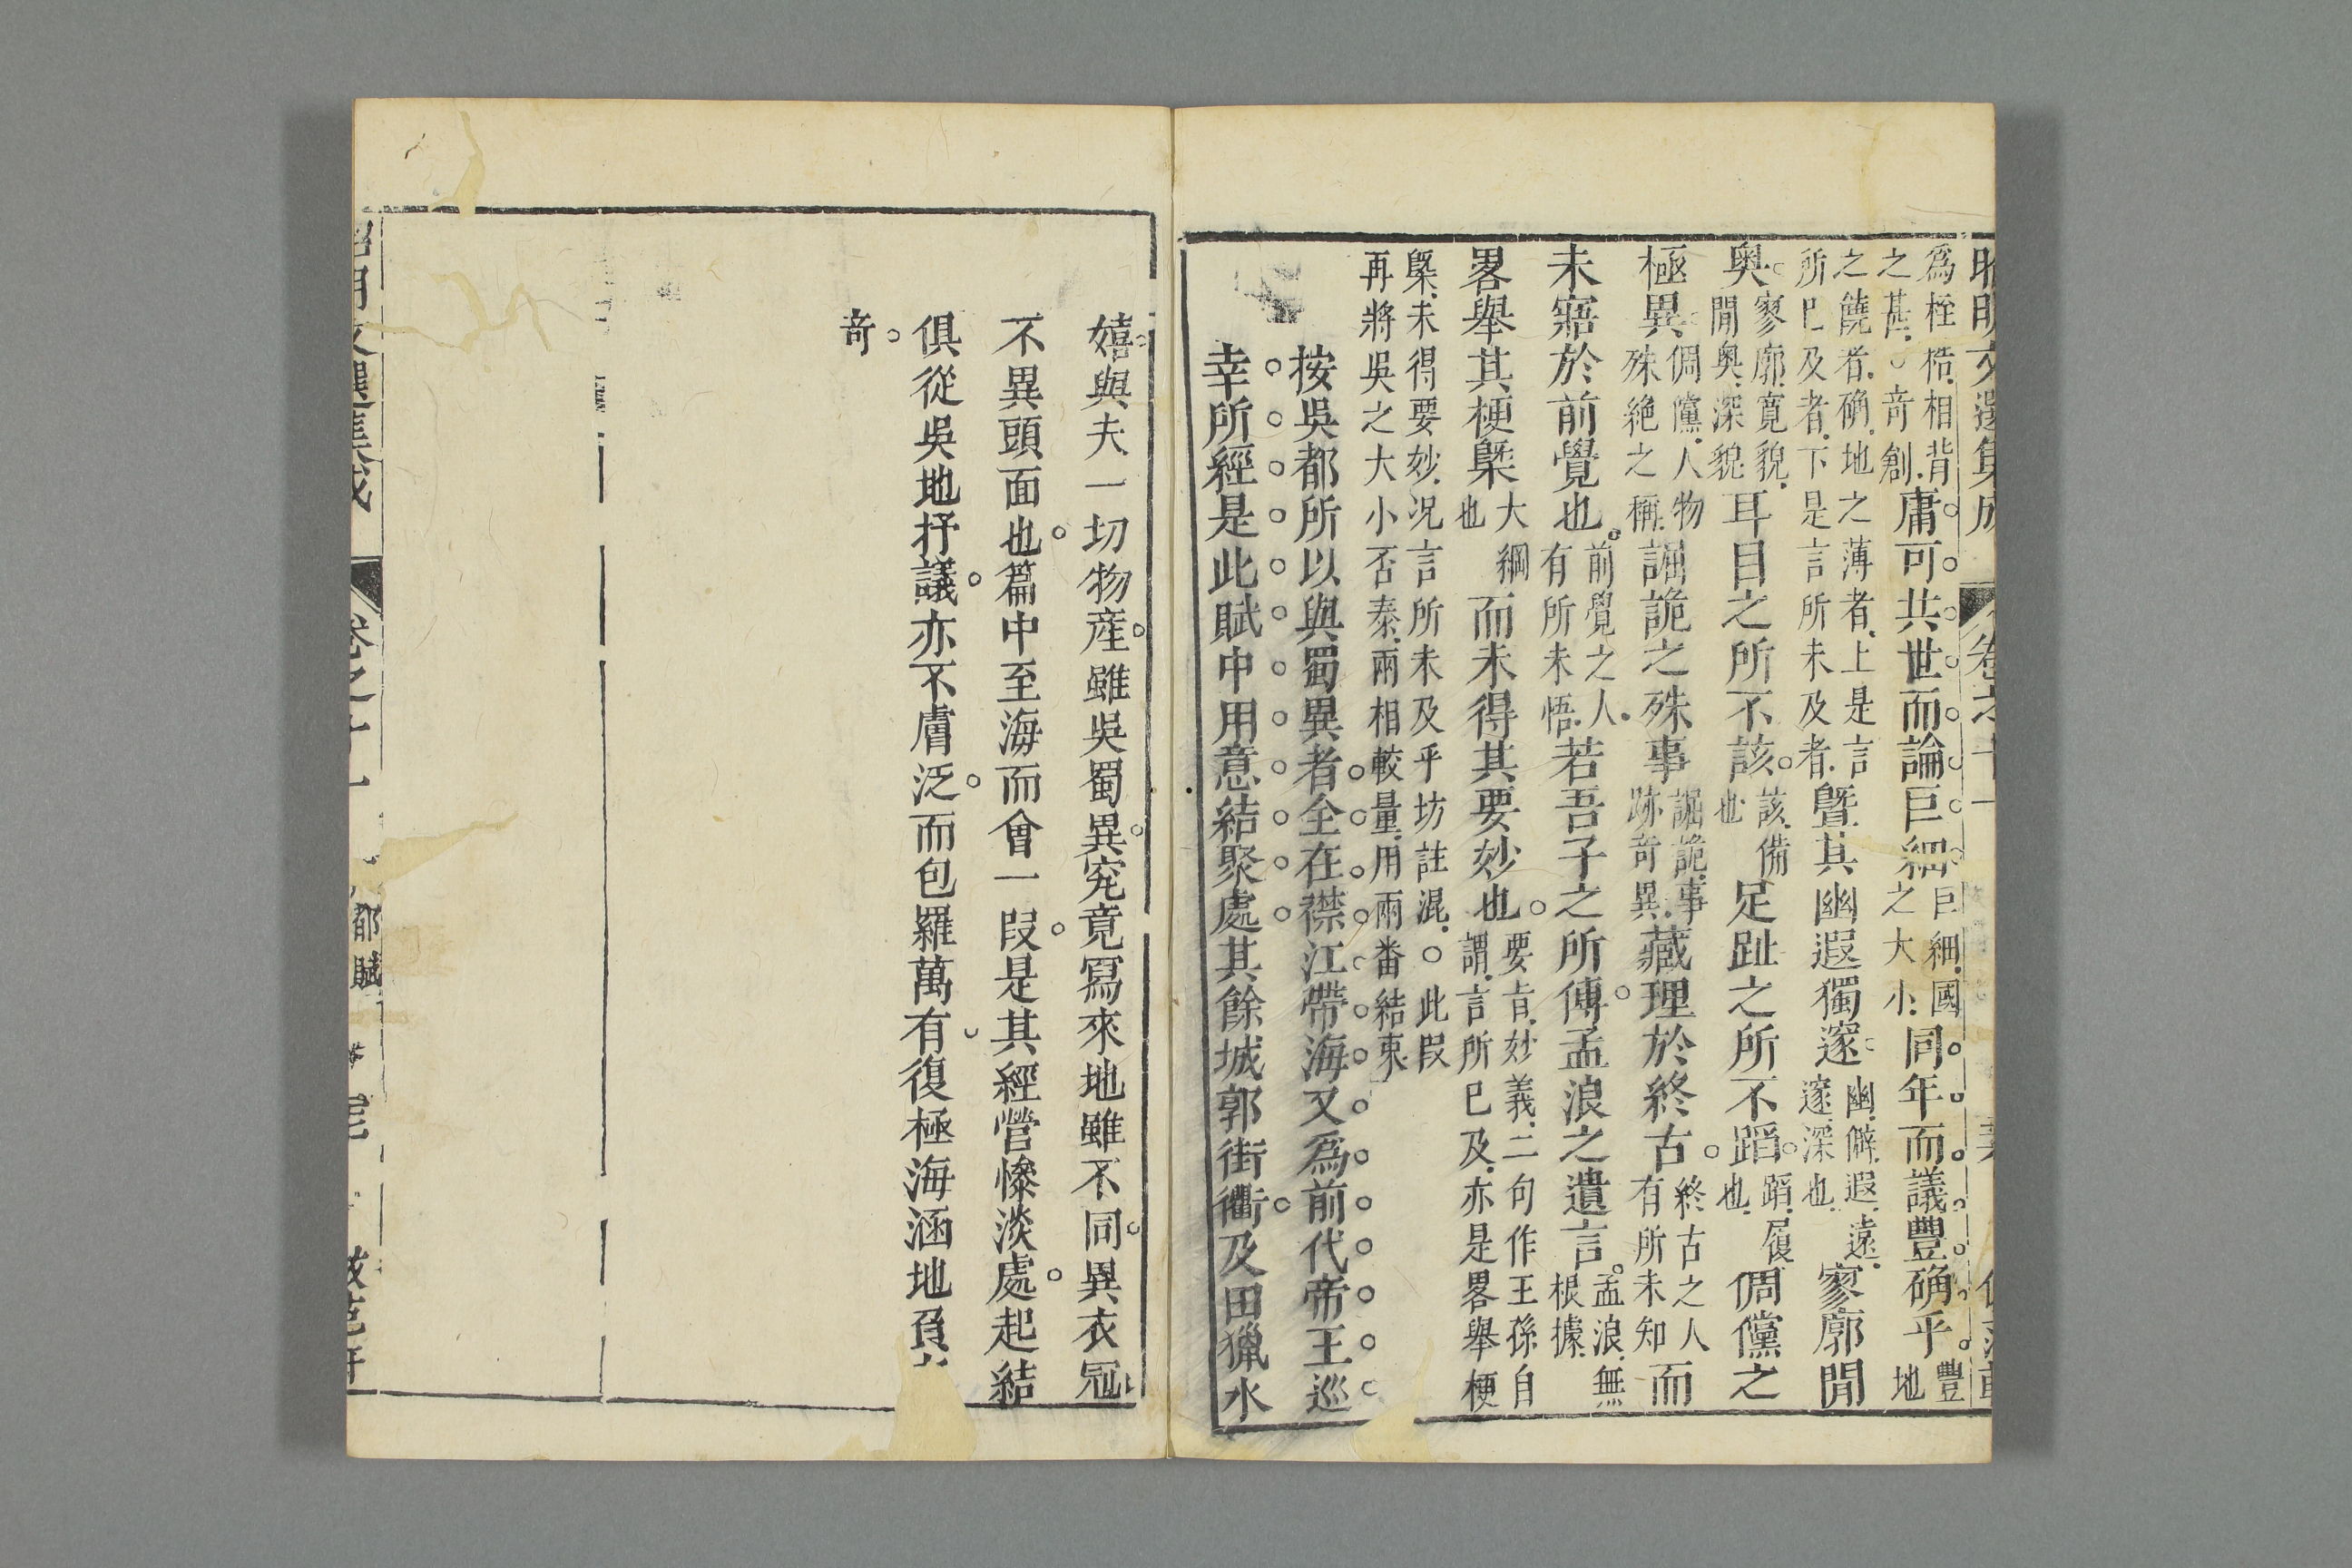 昭明文選集成 卷之十一
爲桎梏相背
之甚○奇創庸可共世而論巨細巨細國
之大小同年而議豐确乎豐地
之饒者确地之薄者上是言
所已及者下是言所未及者曁其幽遐獨邃幽僻遐遠
邃深也寥廓閒
奧寥廓寬貌
閒奧深貌耳目之所不該該備
也足趾之所不蹈蹈履
也倜儻之
極異倜儻人物
殊絶之稱詭詭之殊事詭詭事
跡奇異藏理於終古終古之人
有所未知而
未寤於前覺也前覺之人
有所未悟若吾子之所傳孟浪之遺言孟浪無
根據
畧舉其梗槩大綱
也而未得其要妙也要旨妙義二句作王孫自
謂言所已及亦是畧舉梗
槩未得要妙况言所未及乎坊註混○此叚
再將吳之大小否泰兩相較量用兩番結束
按吳都所以與蜀異者全在襟江帶海又爲前代帝王巡
幸所經是此賦中用意結聚處其餘城郭街衢及田獵水
嬉與夫一切物産雖吳蜀異究竟寫來地雖不同異衣冠
不異頭面也篇中至海而會一叚是其經營慘淡處起結
俱從吳地抒議亦不膚泛而包羅萬有復極海涵地負
奇
昭明文選集成 卷之十一 都賦